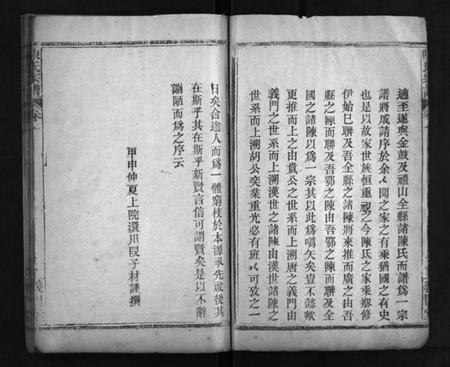 適至遂與金鼓及禮山全縣諸陳氏而譜為一宗
譜將成請序於余余聞之家之有乘猶國之有史
也是以故家世族恒重視之今陳氏之家乘既修
伊始已聯及吾全縣之諸陳將來推而廣之由吾
縣之陳而聯及吾鄂之陳由吾鄂之陳而聯及全
國之諸陳以為一宗其以此為嚆矢矣豈不懿歟
更推而上之由貴公之世系而上溯唐之義門由
義門之世系而上溯漢世之諸陳由漢世諸陳之
世系而上溯胡公奕業重光必有班班可攷之一
日矣合逾人而為一體窮枝於本源承先啟後其
在斯乎其在斯乎新賢言信可謂賢矣是以不辭
譾陋而為之序云
甲申仲夏上院澴川段子材謙撰